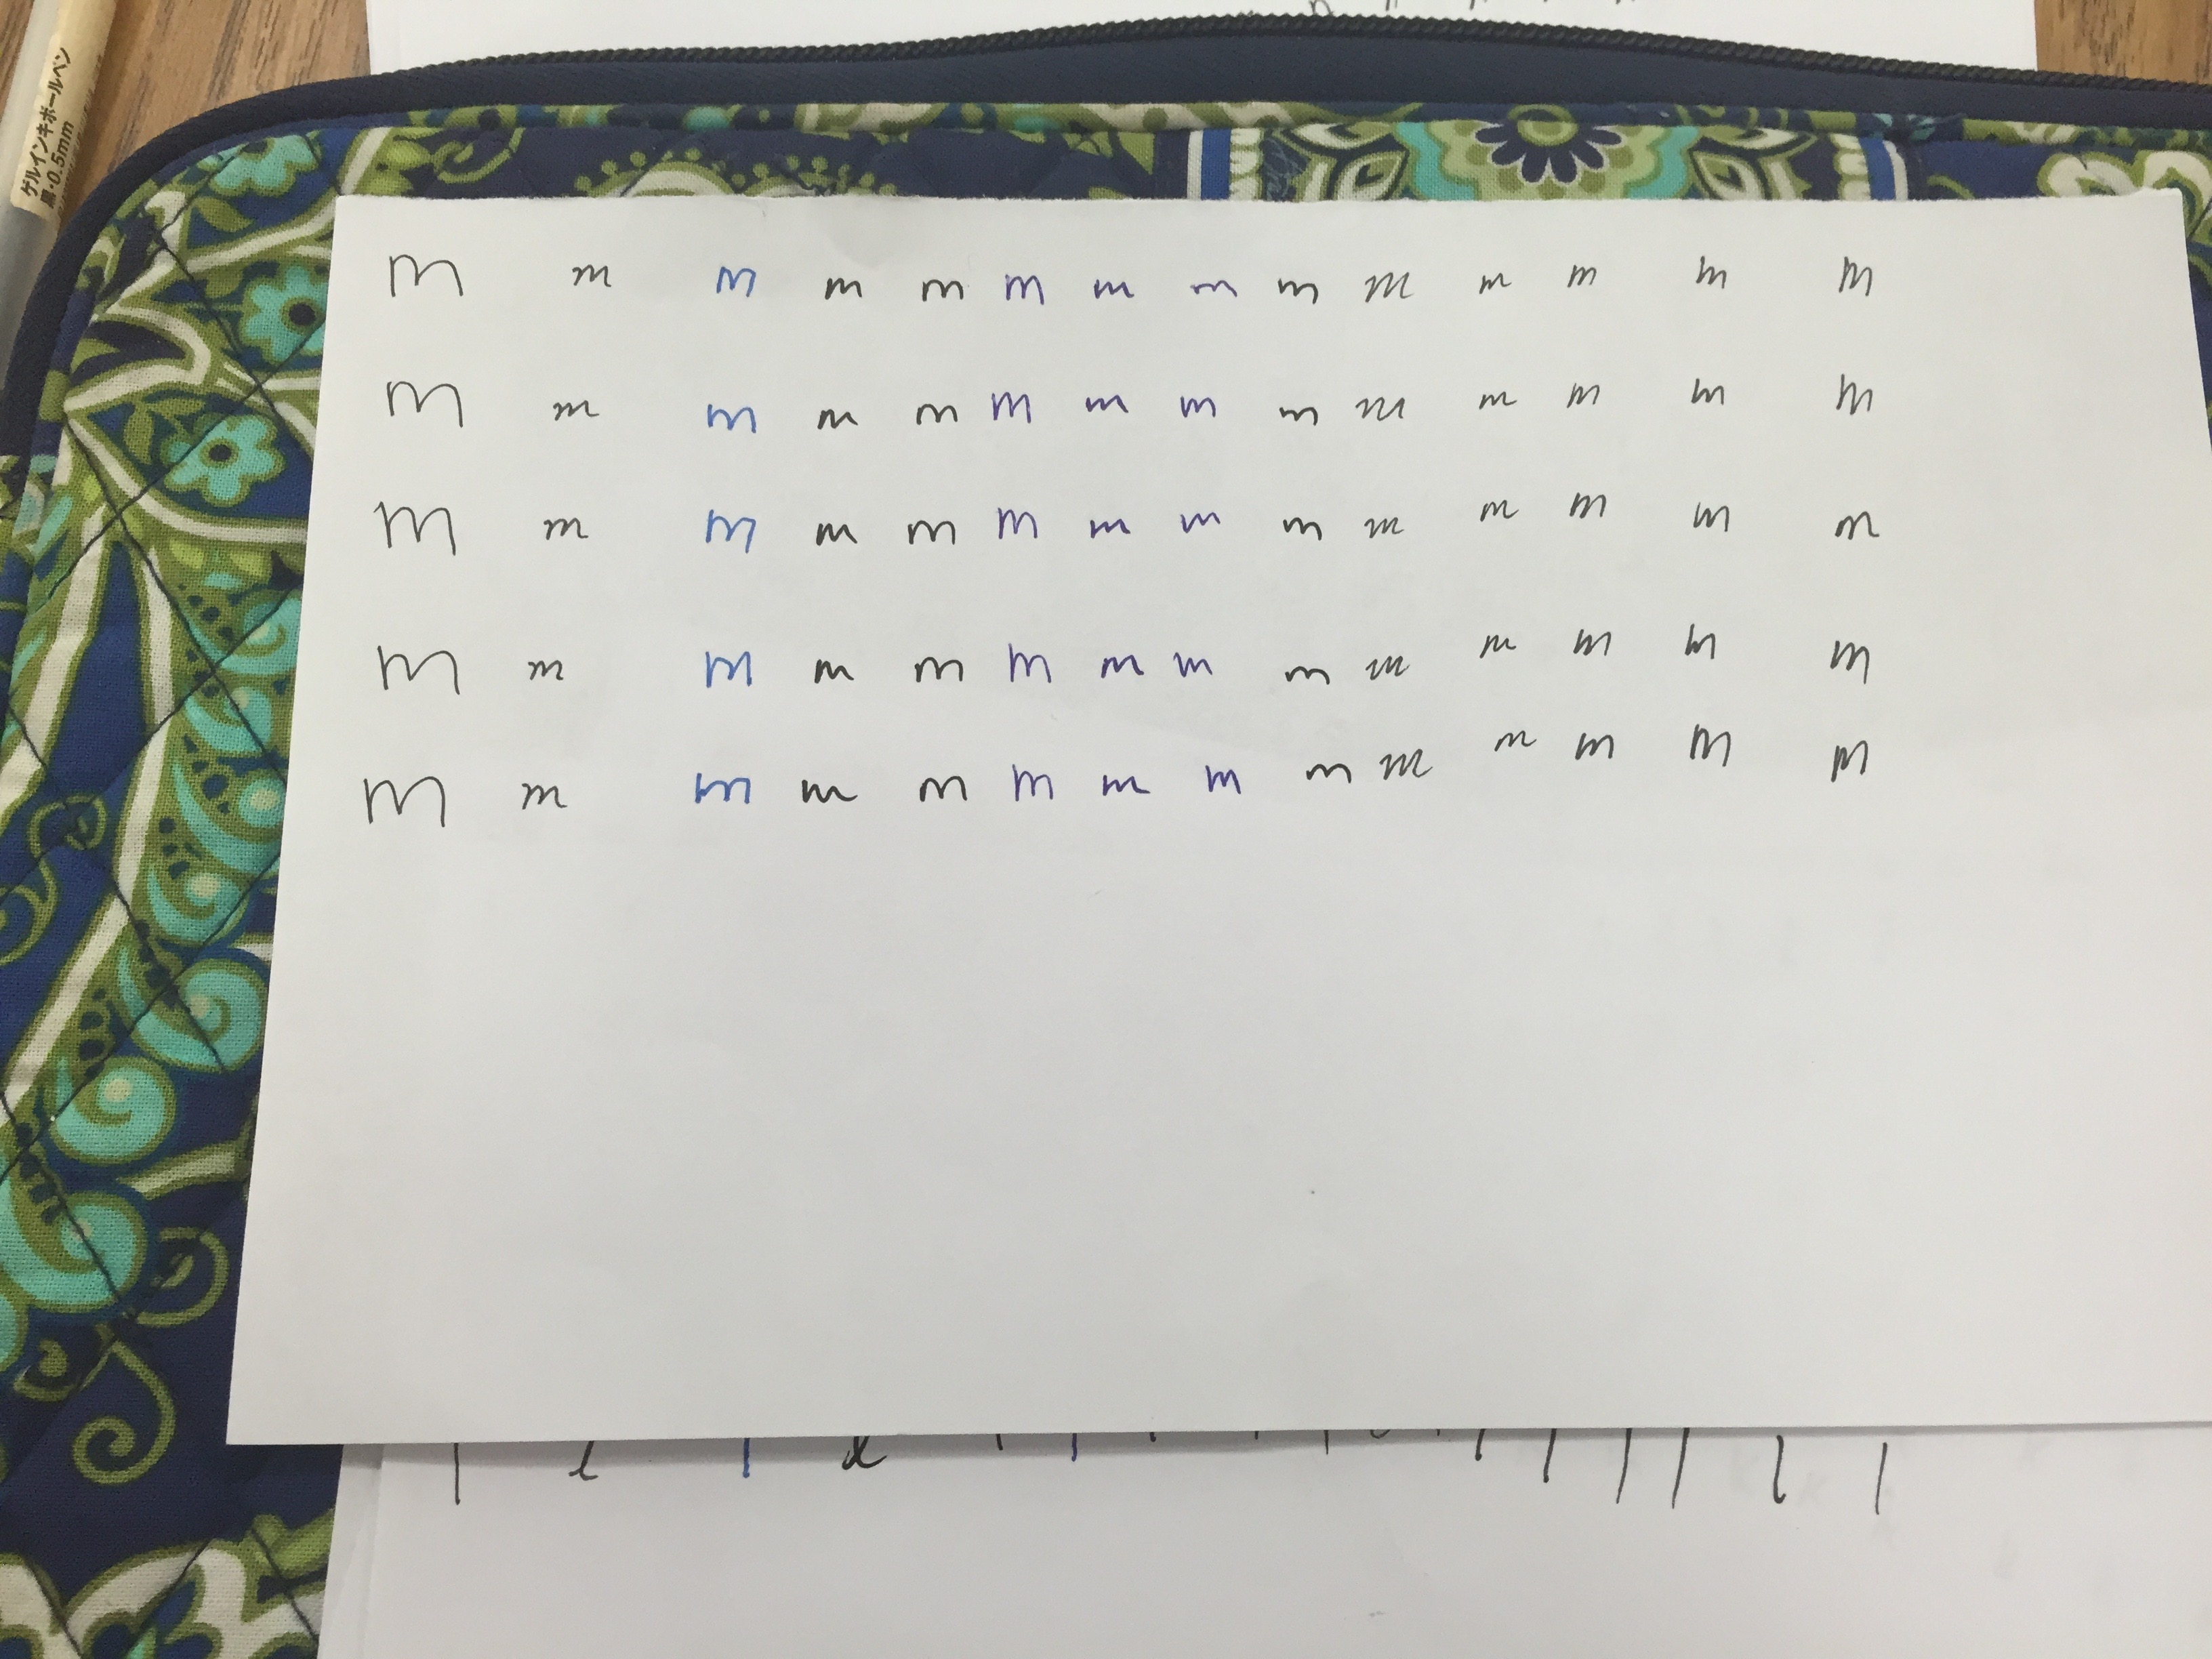 ゲルインキボールペン
黒・0.5mm
m m m m m m m m m m m m m m
m m m m m m m m m m m m m m
m m m m m m m m m m m m m m
m m m m m m m m m m m m m m
m m m m m m m m m m m m m m